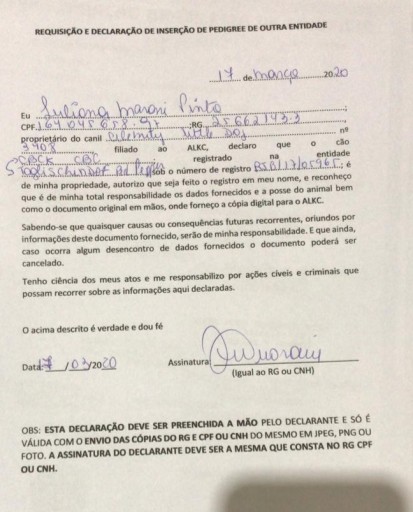 REQUISIÇÃO E DECLARAÇÃO DE INSERÇÃO DE PEDIGREE DE OUTRA ENTIDADE
17 de março 2020
Eu Juliana Marani Pinto
CPF 164045658-97 ;RG 25662143-3
proprietário do canil Celebrity Little Dog nº
3408 filiado ao ALKC, declaro que o cão
CBCK CBC registrado na entidade
sob o número de registro ; é
de minha propriedade, autorizo que seja feito o registro em meu nome, e reconheço
que é de minha total responsabilidade os dados fornecidos e a posse do animal bem
como o documento original em mãos, onde forneço a cópia digital para o ALKC.
Sabendo-se que quaisquer causas ou consequências futuras recorrentes, oriundos por
informações deste documento fornecido, serão de minha responsabilidade. E que ainda,
caso ocorra algum desencontro de dados fornecidos o documento poderá ser
cancelado.
Tenho ciência dos meus atos e me responsabilizo por ações cíveis e criminais que
possam recorrer sobre as informações aqui declaradas.
O acima descrito é verdade e dou fé
Data: 17/03/2020 Assinatura:
(Igual ao RG ou CNH)
OBS: ESTA DECLARAÇÃO DEVE SER PREENCHIDA A MÃO PELO DECLARANTE E SÓ É
VÁLIDA COM O ENVIO DAS CÓPIAS DO RG E CPF OU CNH DO MESMO EM JPEG, PNG OU
FOTO. A ASSINATURA DO DECLARANTE DEVE SER A MESMA QUE CONSTA NO RG CPF
OU CNH.